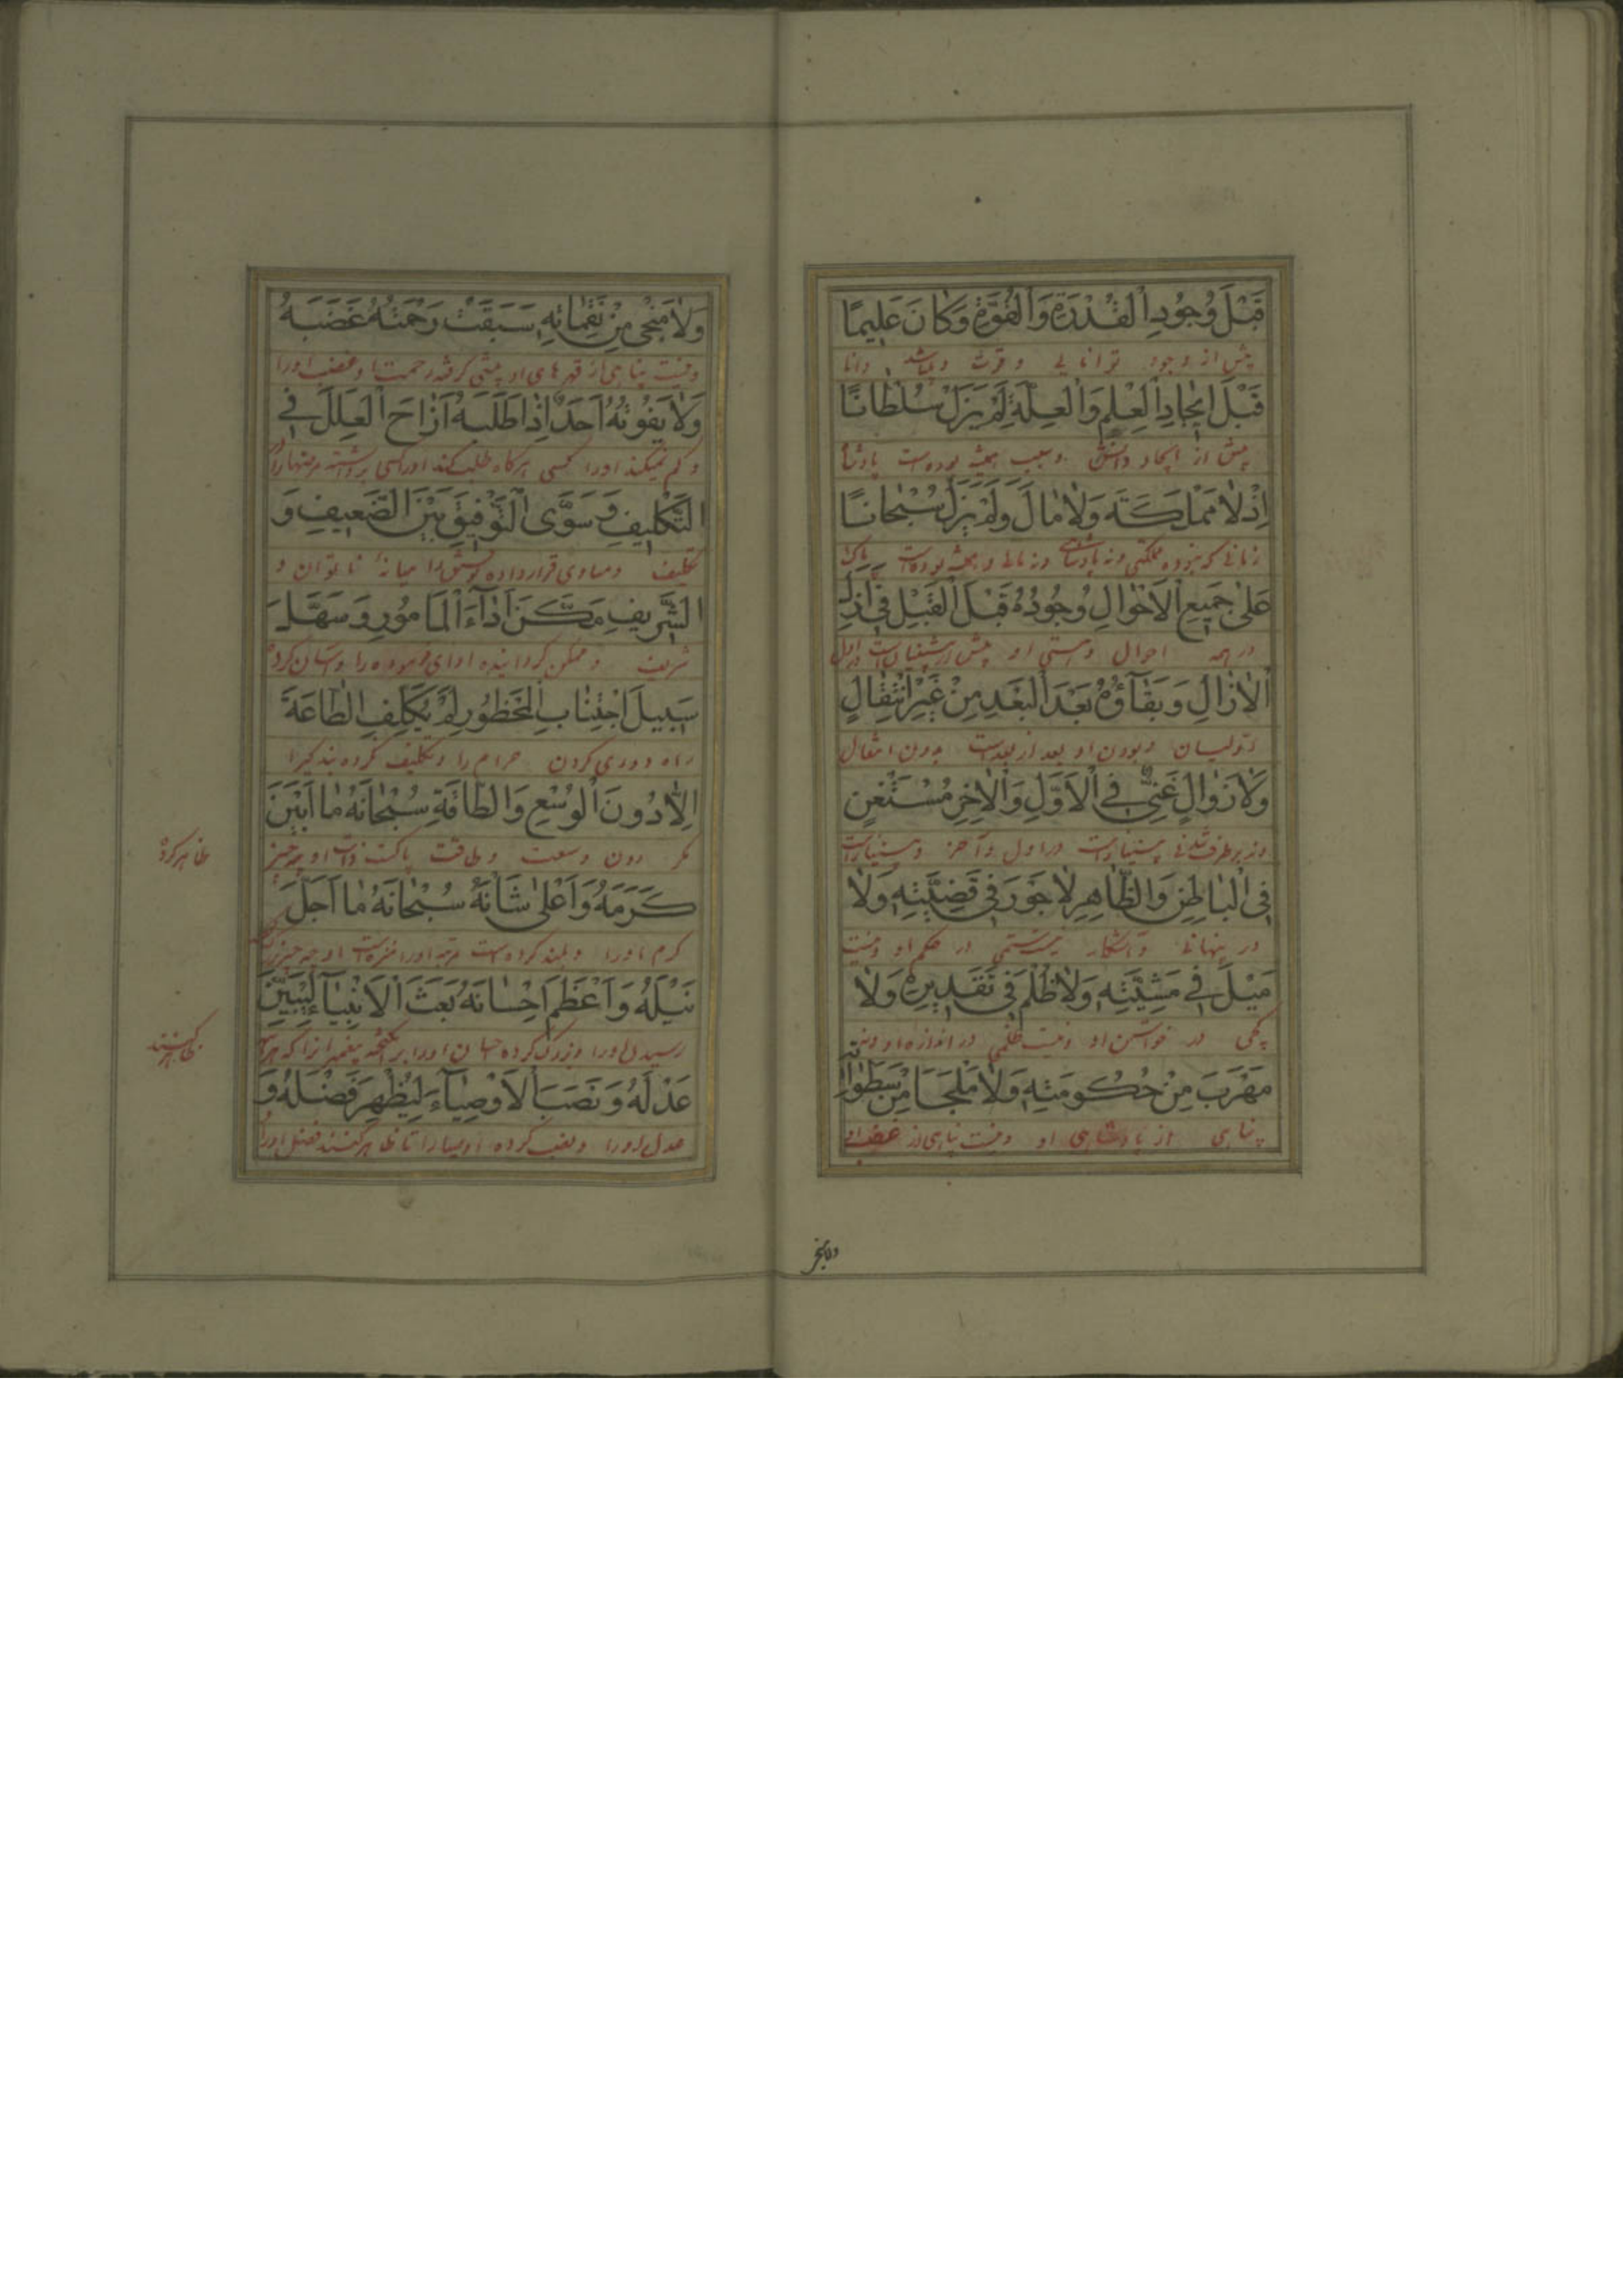 قَبْلَ وُجُودِ الْقُدْرَةِ وَالْقُوَّةِ وَكَانَ عَلِيمًا
پیش از وجود توانایی و قوت و دانا
قَبْلَ اِيجَادِ الْعِلْمِ وَالْعِلَّةِ لَمْ يَزَلْ سُلْطَانًا
پیش از ایجاد دانش و سبب همیشه بوده است پادشاه
اِذْ لَا مَمْلَكَةَ وَلَا مَالَ وَلَمْ يَزَلْ سُبْحَانًا
زمانی که نبوده مملکتی و نه مالی و همیشه بوده است پاک
عَلٰى جَمِيعِ الْاَحْوَالِ وُجُودُهُ قَبْلَ الْقَبْلِ فِى اَزَلِ
در همه احوال و هستی او پیش از پیشینیان است در ازل
الْاٰزَالِ وَبَقَاؤُهُ بَعْدَ الْبَعْدِ مِنْ غَيْرِ انْتِقَالٍ
و بودن او بعد از بعد است بدون انتقال
وَلَا زَوَالٍ غَنِىٌّ فِى الْاَوَّلِ وَالْاٰخِرِ مُسْتَغْنٍ
در اول و آخر و بی‌نیاز است
فِى الْبَاطِنِ وَالظَّاهِرِ لَا جَوْرَ فِى قَضِيَّتِهِ وَلَا
در پنهانی و آشکار نیست ستمی در حکم او و نیست
مَيْلَ فِى مَشِيَّتِهِ وَلَا ظُلْمَ فِى تَقْدِيرِهِ وَلَا
در خواستن او و نیست ظلمی در اندازه او و نیست
مَهْرَبَ مِنْ حُكُومَتِهِ وَلَا مَلْجَاَ مِنْ سَطَوَاتِهِ
پناهی از پادشاهی او و نیست پناهی از غضب او
وَلَا مَنْجٰى مِنْ نَقِمَاتِهِ سَبَقَتْ رَحْمَتُهُ غَضَبَهُ
و نیست پناهی از قهرهای او پیشی گرفته رحمت او غضب او را
وَلَا يَفُوتُهُ اَحَدٌ اِذَا طَلَبَهُ اَزَاحَ الْعِلَلَ فِى
و گم نمیکند او را کسی هرگاه طلب کند او را
التَّكْلِيفِ وَسَوَّى التَّوْفِيقَ بَيْنَ الضَّعِيفِ وَ
تکلیف و مساوی قرار داده میانه ناتوان و
الشَّرِيفِ مَكَّنَ اَدَاءَ الْمَأْمُورِ وَسَهَّلَ
شریف و ممکن گردانیده ادای را و آسان کرده
سَبِيلَ اجْتِنَابِ الْمَحْظُورِ لَمْ يُكَلِّفِ الطَّاعَةَ
راه دوری کردن حرام را و تکلیف نکرده
اِلَّا دُونَ الْوُسْعِ وَالطَّاقَةِ سُبْحَانَهُ مَا اَبْيَنَ
مگر دون وسعت و طاقت پاکست ذات او چه چیز
ظاهر کرده
كَرَمَهُ وَاَعْلٰى شَاْنَهُ سُبْحَانَهُ مَا اَجَلَّ
کرم او را و بلند کرده است مرتبه او را منزه است او چه چیز
نَيْلَهُ وَاَعْظَمَ اِحْسَانَهُ بَعَثَ الْاَنْبِيَاءَ لِيُبَيِّنَ
رسیدن او را و بزرگ کرده احسان او را
عَدْلَهُ وَنَصَبَ الْاَوْصِيَاءَ لِيُظْهِرَ فَضْلَهُ وَ
عدل او را و نصب کرده اوصیا را تا ظاهر کنند فضل او را